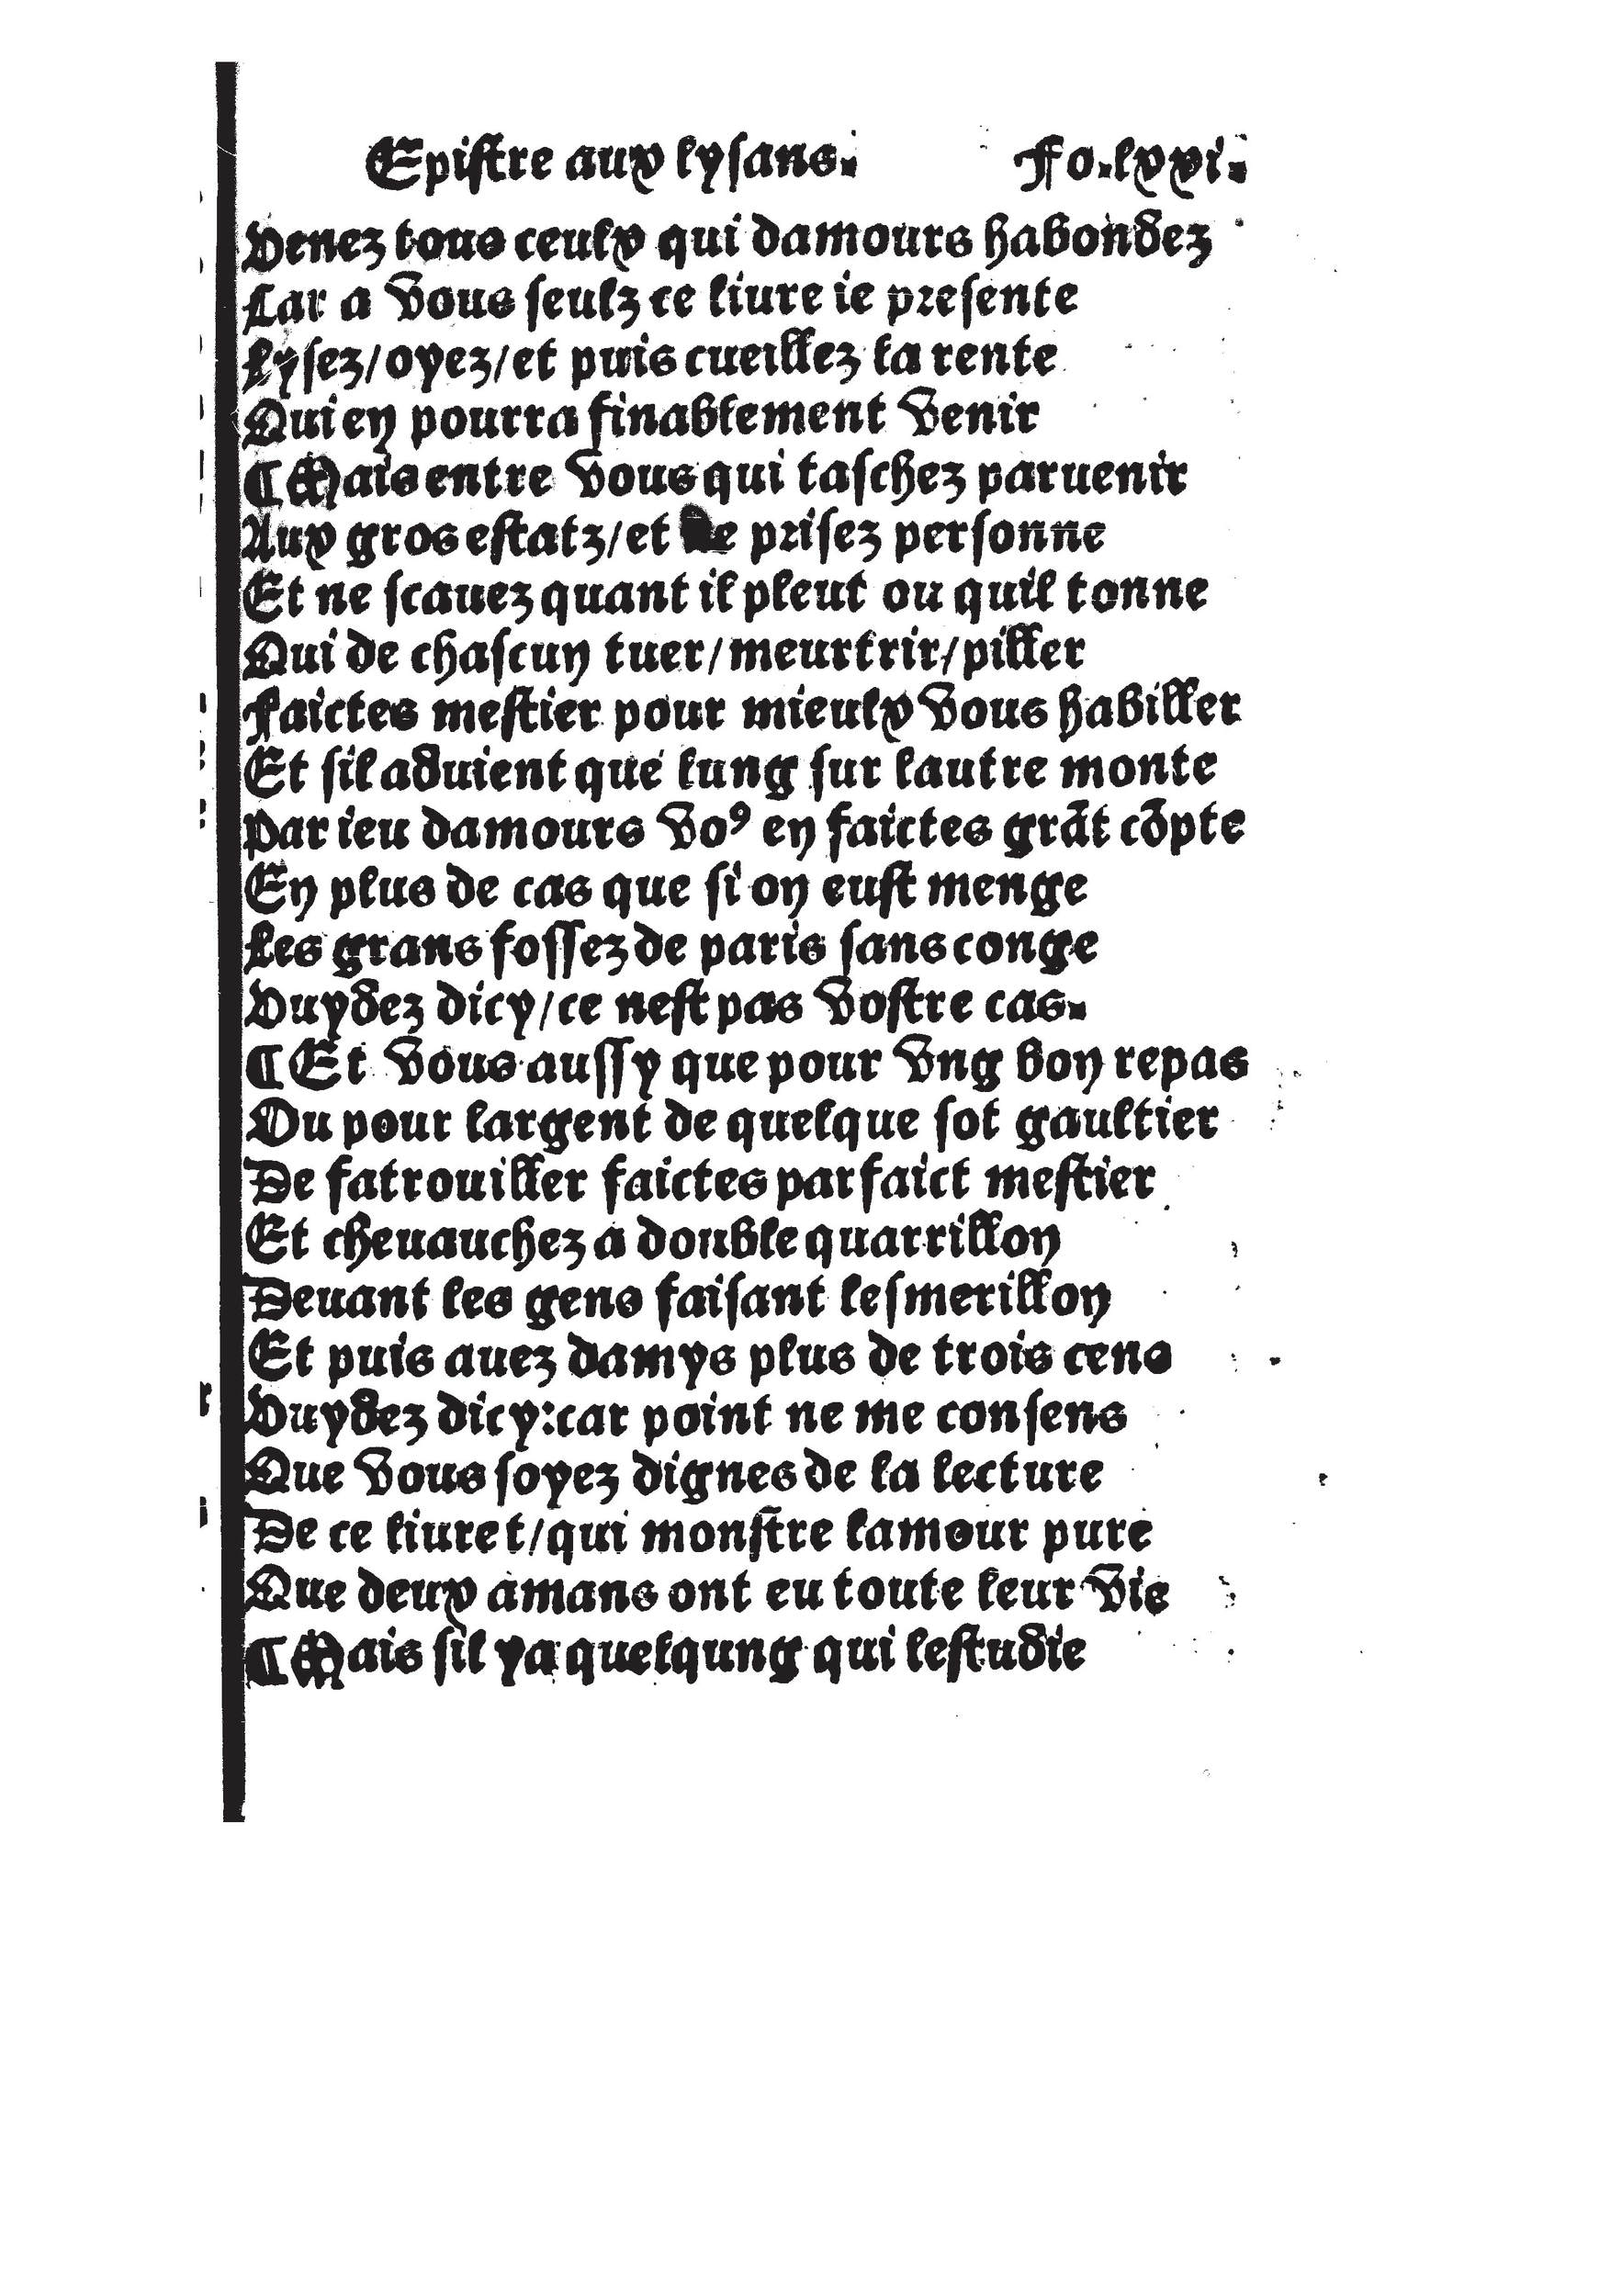 Epistre aux lysans. Fo.lxxi.
Venez tous ceulx qui damours habondez
Car a vous seulz ce liure ie presente
Lysez/oyez/et puis cueillez la rente
Qui en pourra finablement venir
¶ Mais entre vous qui taschez paruenir
Aux gros estatz/et ne prisez personne
Et ne scauez quant il pleut ou quil tonne
Qui de chascun tuer/meurtrir/piller
Faictes mestier pour mieulx vous habiller
Et sil aduient que lung sur lautre monte
Par ieu damours voꝰ en faictes grãt cõpte
En plus de cas que si on eust menge
Les grans fossez de paris sans conge
Vuydez dicy/ce nest pas vostre cas.
¶ Et vous aussy que pour vng bon repas
Ou pour largent de quelque sot gaultier
De fatrouiller faictes parfaict mestier
Et cheuauchez a double quarrillon
Deuant les gens faisant lesmerillon
Et puis auez damys plus de trois cens
Vuydez dicy:car point ne me consens
Que vous soyez dignes de la lecture
De ce liuret/qui monstre lamour pure
Que deux amans ont eu toute leur vie
¶ Mais sil ya quelqung qui lestudie